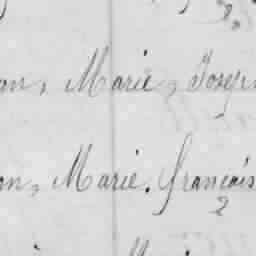 an, Marie, Joseph
an, Marie, français
2